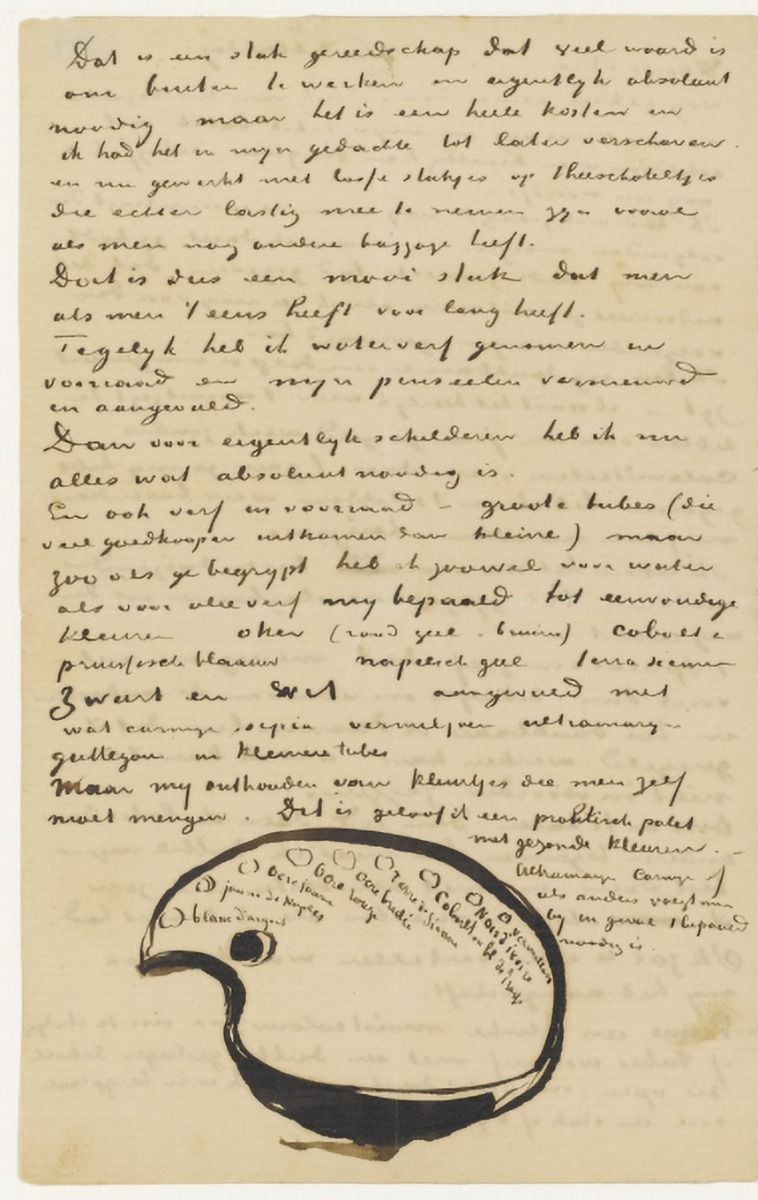 Dat is een stuk gereedschap dat veel waard is
om buiten te werken en eigentlyk absoluut
noodig maar het is een heele kosten en
ik had het in myn gedachte tot later verschoven
en nu gewerkt met losse stukjes op theeschoteltjes
die echter lastig mee te nemen zyn vooral
als men nog andere baggage heeft.
Dat is dus een mooi stuk dat men
als men 't eens heeft voor lang heeft.
Tegelyk heb ik waterverf genomen in
voorraad en myn penseelen vernieuwd
en aangevuld.
Dan voor eigentlyk schilderen heb ik nu
alles wat absoluut noodig is.
En ook verf in voorraad - groote tubes (die
veel goedkooper uitkomen dan kleine) maar
zooals ge begrypt heb ik zoowel voor water
als voor olieverf my bepaald tot eenvoudige
kleuren oker (rood geel bruin) cobalt &
pruissisch blaauw napelsch geel terra sienna
Zwart en wit aangevuld met
wat carmyn sepia vermiljoen ultramaryn
guttegom in kleinere tubes
Maar my onthouden van kleurtjes die men zelf
moet mengen. Dit is geloof ik een praktisch palet
met gezonde kleuren. -
Ultramaryn Carmyn of
als anders voegt men
by in geval 't bepaald
noodig is.
blanc d'argent
jaune de Naples
Ocre jaune
Ocre rouge
Ocre brulée
Terre de Sienne
Cobalt ou bl. de
Noir d'ivoire
Vermillon